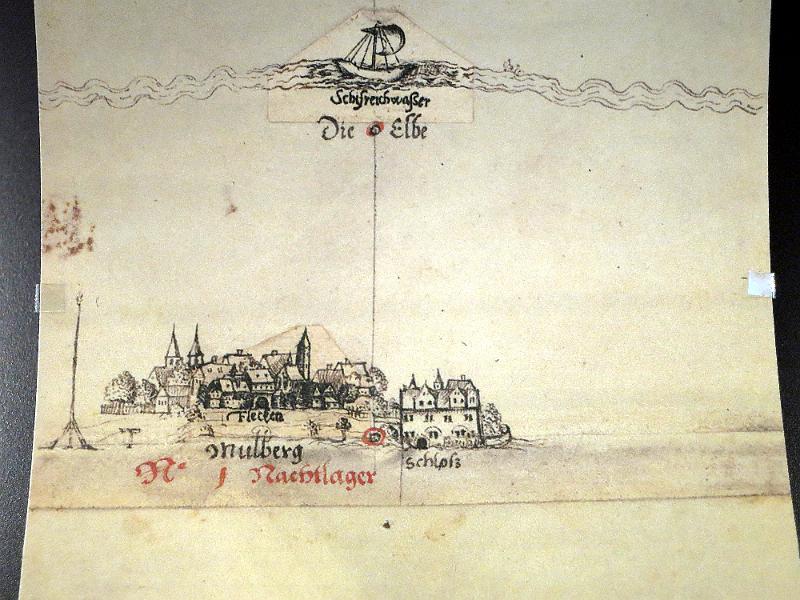 Schifreichwaßer
Die Elbe
Flecken
Mulberg
Schloß
No 1 Nachtlager